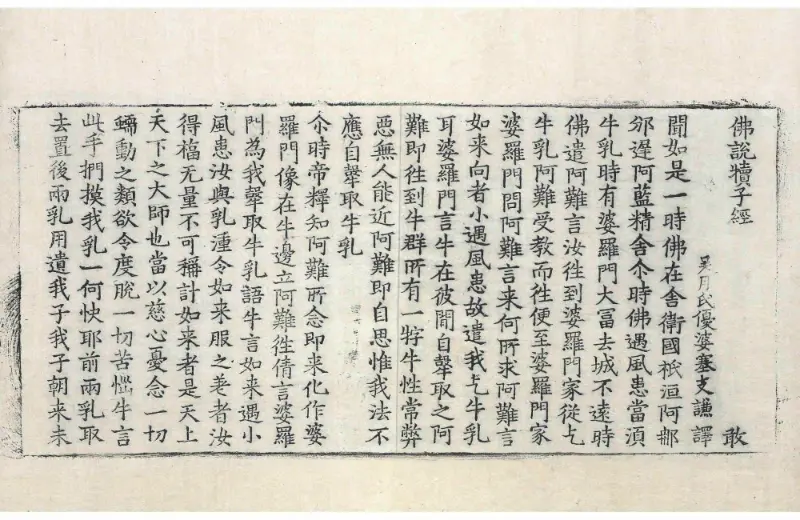 佛說犢子經 敢
吳月氏優婆塞支謙譯
聞如是一時佛在舍衛國祇洹阿那
邠遅阿藍精舍尒時佛遇風患當湏
牛乳時有婆羅門大冨去城不遠時
佛遣阿難言汝徃到婆羅門家從乞
牛乳阿難受教而徃便至婆羅門家
婆羅門問阿難言来何所求阿難言
如来向者小遇風患故遣我乞牛乳
耳婆羅門言牛在彼間自𤛗取之阿
難即徃到牛群所有一牸牛性常弊
惡無人能近阿難即自思惟我法不
應自𤛗取牛乳
尒時帝釋知阿難所念即来化作婆
羅門像在牛邊立阿難徃倩言婆羅
門為我𤛗取牛乳語牛言如来遇小
風患汝與乳湩令如来服之差者汝
得福无量不可稱計如来者是天上
天下之大師也當以慈心憂念一切
蠕動之類欲令度脫一切苦惱牛言
此手捫摸我乳一何快耶前兩乳取
去置後兩乳用遺我子我子朝来未